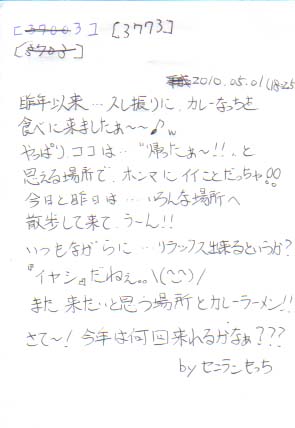 [37003] [3773]
[3703]
平成 2010.05.01 (18:25
昨年以来…久し振りに、カレーなっちを
食べに来ましたぁ〜〜♪w
やっぱりココは…"帰ったぁ〜!!"と
思える場所で、ホンマにイイことだっちゃ!!
今日と昨日は…いろんな場所へ
散歩して来て、う〜ん!!
いつもながらに…リラックス出来るというか?
『イヤシ』だねぇ。。\(^^)/
また 来たいと思う場所とカレーラーメン!!
さて〜! 今年は何回来れるかなぁ???
by セニランせっち